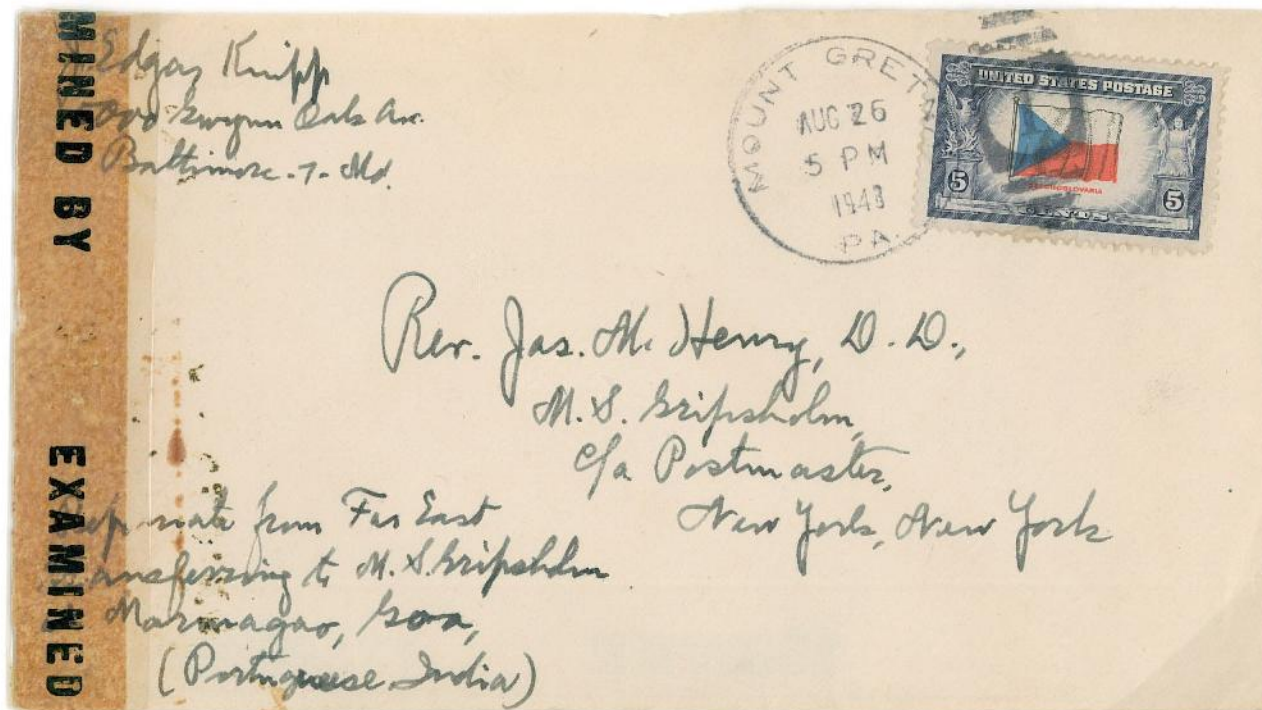 Edgar Knipp
Gwynn Oak Av.
Baltimore - 7 - Md.
MOUNT GRETN
AUG 26
5 PM
1943
PA.
UNITED STATES POSTAGE
CZECHOSLOVAKIA
5 5
CENTS
Rev. Jas. M. Henry, D. D.,
M. S. Gripsholm,
c/o Postmaster,
New York, New York
from Far East
ansferring to M. S. Gripsholm
Marmagao, Goa,
(Portuguese India)
MINED BY
EXAMINED